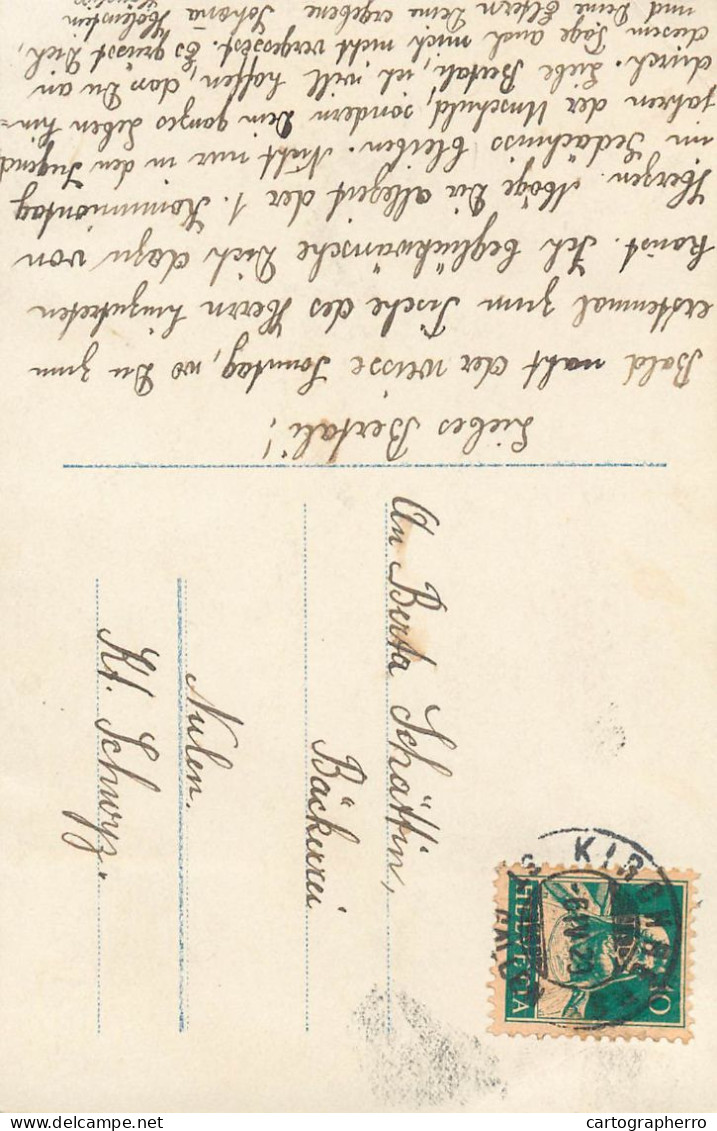 Liebes Bertali!
Bald naht der weisse Sonntag, wo Du zum
erstenmal zum Tische des Herrn hinzutreten
kanst. Ich beglückwünsche Dich dazu von
Herzen. Möge Dir allezeit der 1. Kommuniontag
im Gedächniss bleiben. Nicht nur in den Jugend
jahren der Unschuld, sondern Dein ganzes Leben hin-
durch. Liebe Bertali, ich will hoffen, das Du an
diesem Tage auch mich nicht vergessest. Es grüsst Dich,
und Deine Eltern Deine ergebene Johana
An Berta Schättin,
Bäckerei
Nulen.
Kt. Schwyz.
HELVETIA
10
cartographerro